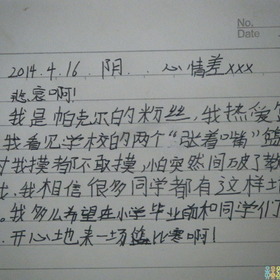 No.
Date
2014.4.16. 阴... 心情差xxx
悲哀啊!
我是帕克尔的粉丝,我热爱
我看见学校的两个“张着嘴”
时我摸都不敢摸,怕突然间破了
我相信很多同学都有这样
。我多么希望在小学毕业前和同学们
开心地来一场 比赛啊!